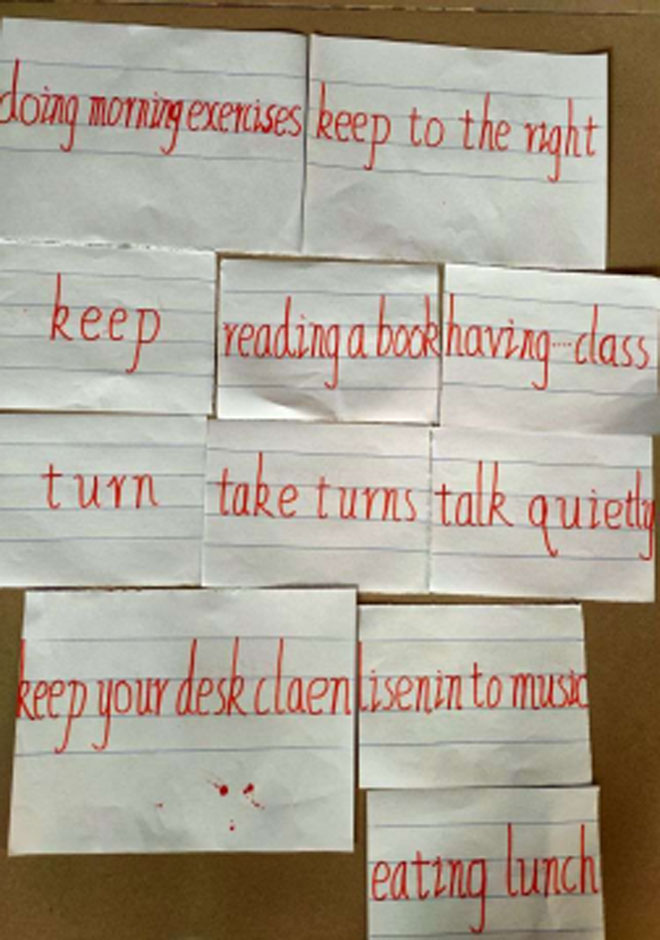 doing morning exercises
keep to the right
keep
reading a book
having...class
turn
take turns
talk quietly
keep your desk claen
Lisenin to music
eating lunch